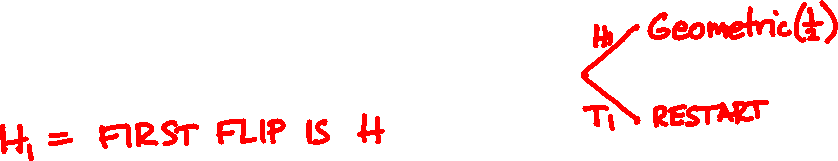 H₁ Geometric(½)
T₁ RESTART
H₁ = FIRST FLIP IS H